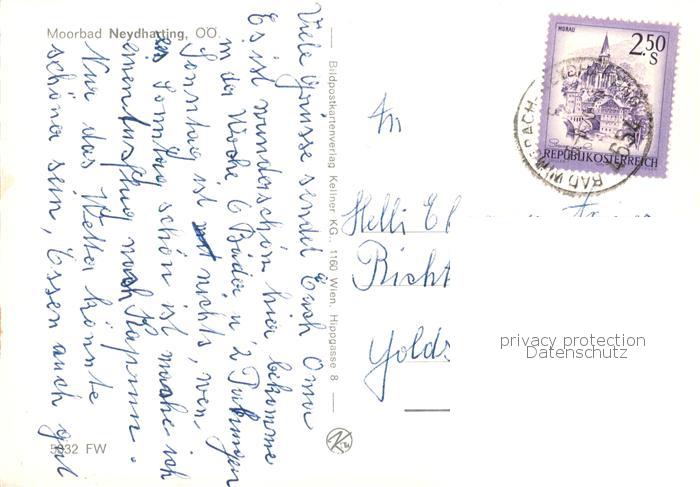 Moorbad Neydharting, OÖ.
Viele Grüsse sendet Euch Oma
Es ist wunderschön hier bekomme
in der Woche 6 Bäder u 2 Packungen
Sonntag ist nichts, wen-
es Sonntag schön ist mache ich
einen Ausflug nach Kaprun.
Nur das Wetter könnte
schöna sein, Essen auch gut
5032 FW
Bildpostkartenverlag Kellner KG., 1160 Wien, Hippgasse 8
An
Helli
Richt
Golds
MURAU
2.50
S
REPUBLIK ÖSTERREICH
4654
BAD WIMSBACH-
privacy protection
Datenschutz